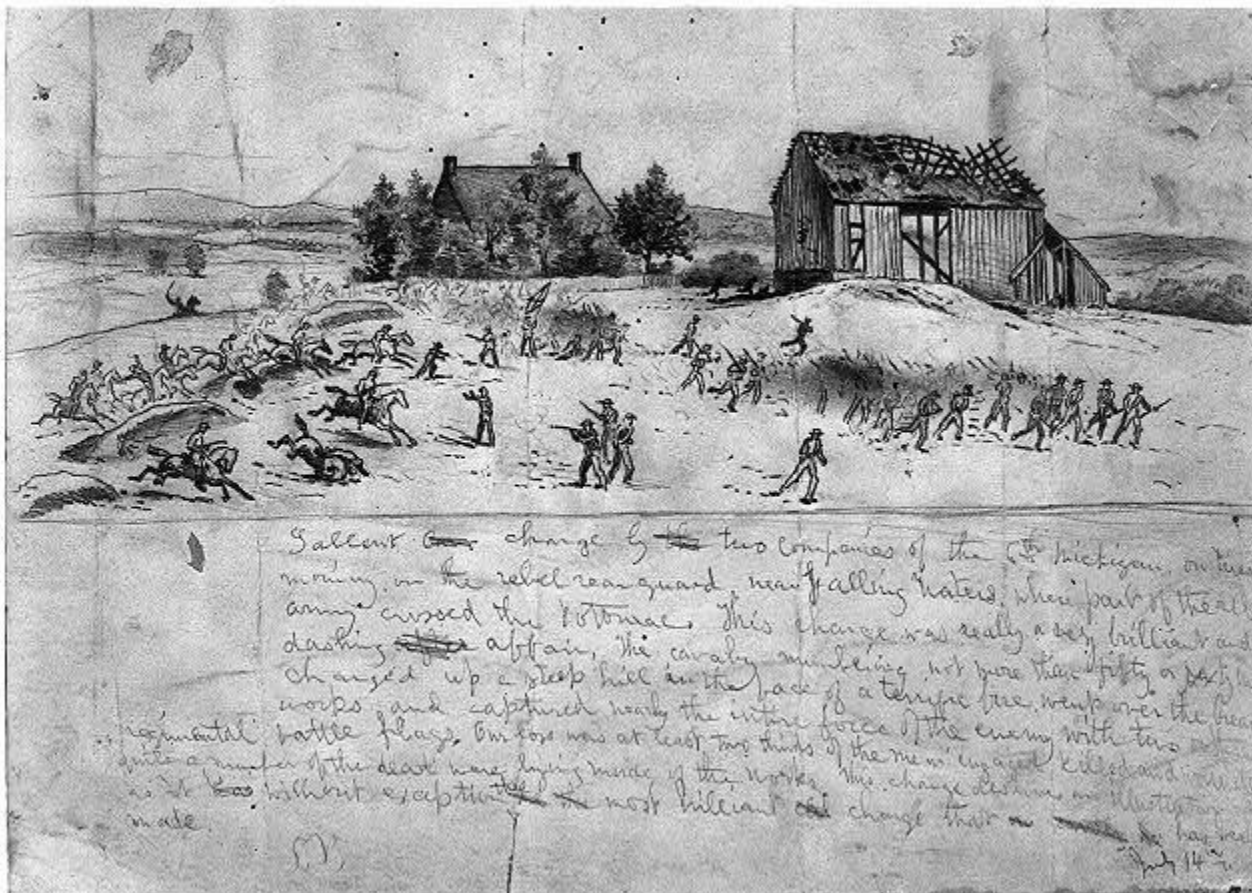 Gallant charge by two companies of the 6th Michigan, on this
morning on the rebel rearguard, near Falling Waters, where part of the
army crossed the Potomac. This charge was really a very brilliant and
dashing affair, The cavalry numbering not more than fifty or sixty
charged up a steep hill in the face of a terrific fire, went over the
works, and captured nearly the entire force of the enemy with two
regimental battle flags. Our loss was at least two thirds of the men engaged killed and
quite a number of the dead were lying inside of the works. This charge deserves an illustration
as it without exception most brilliant charge that has
made.
July 14